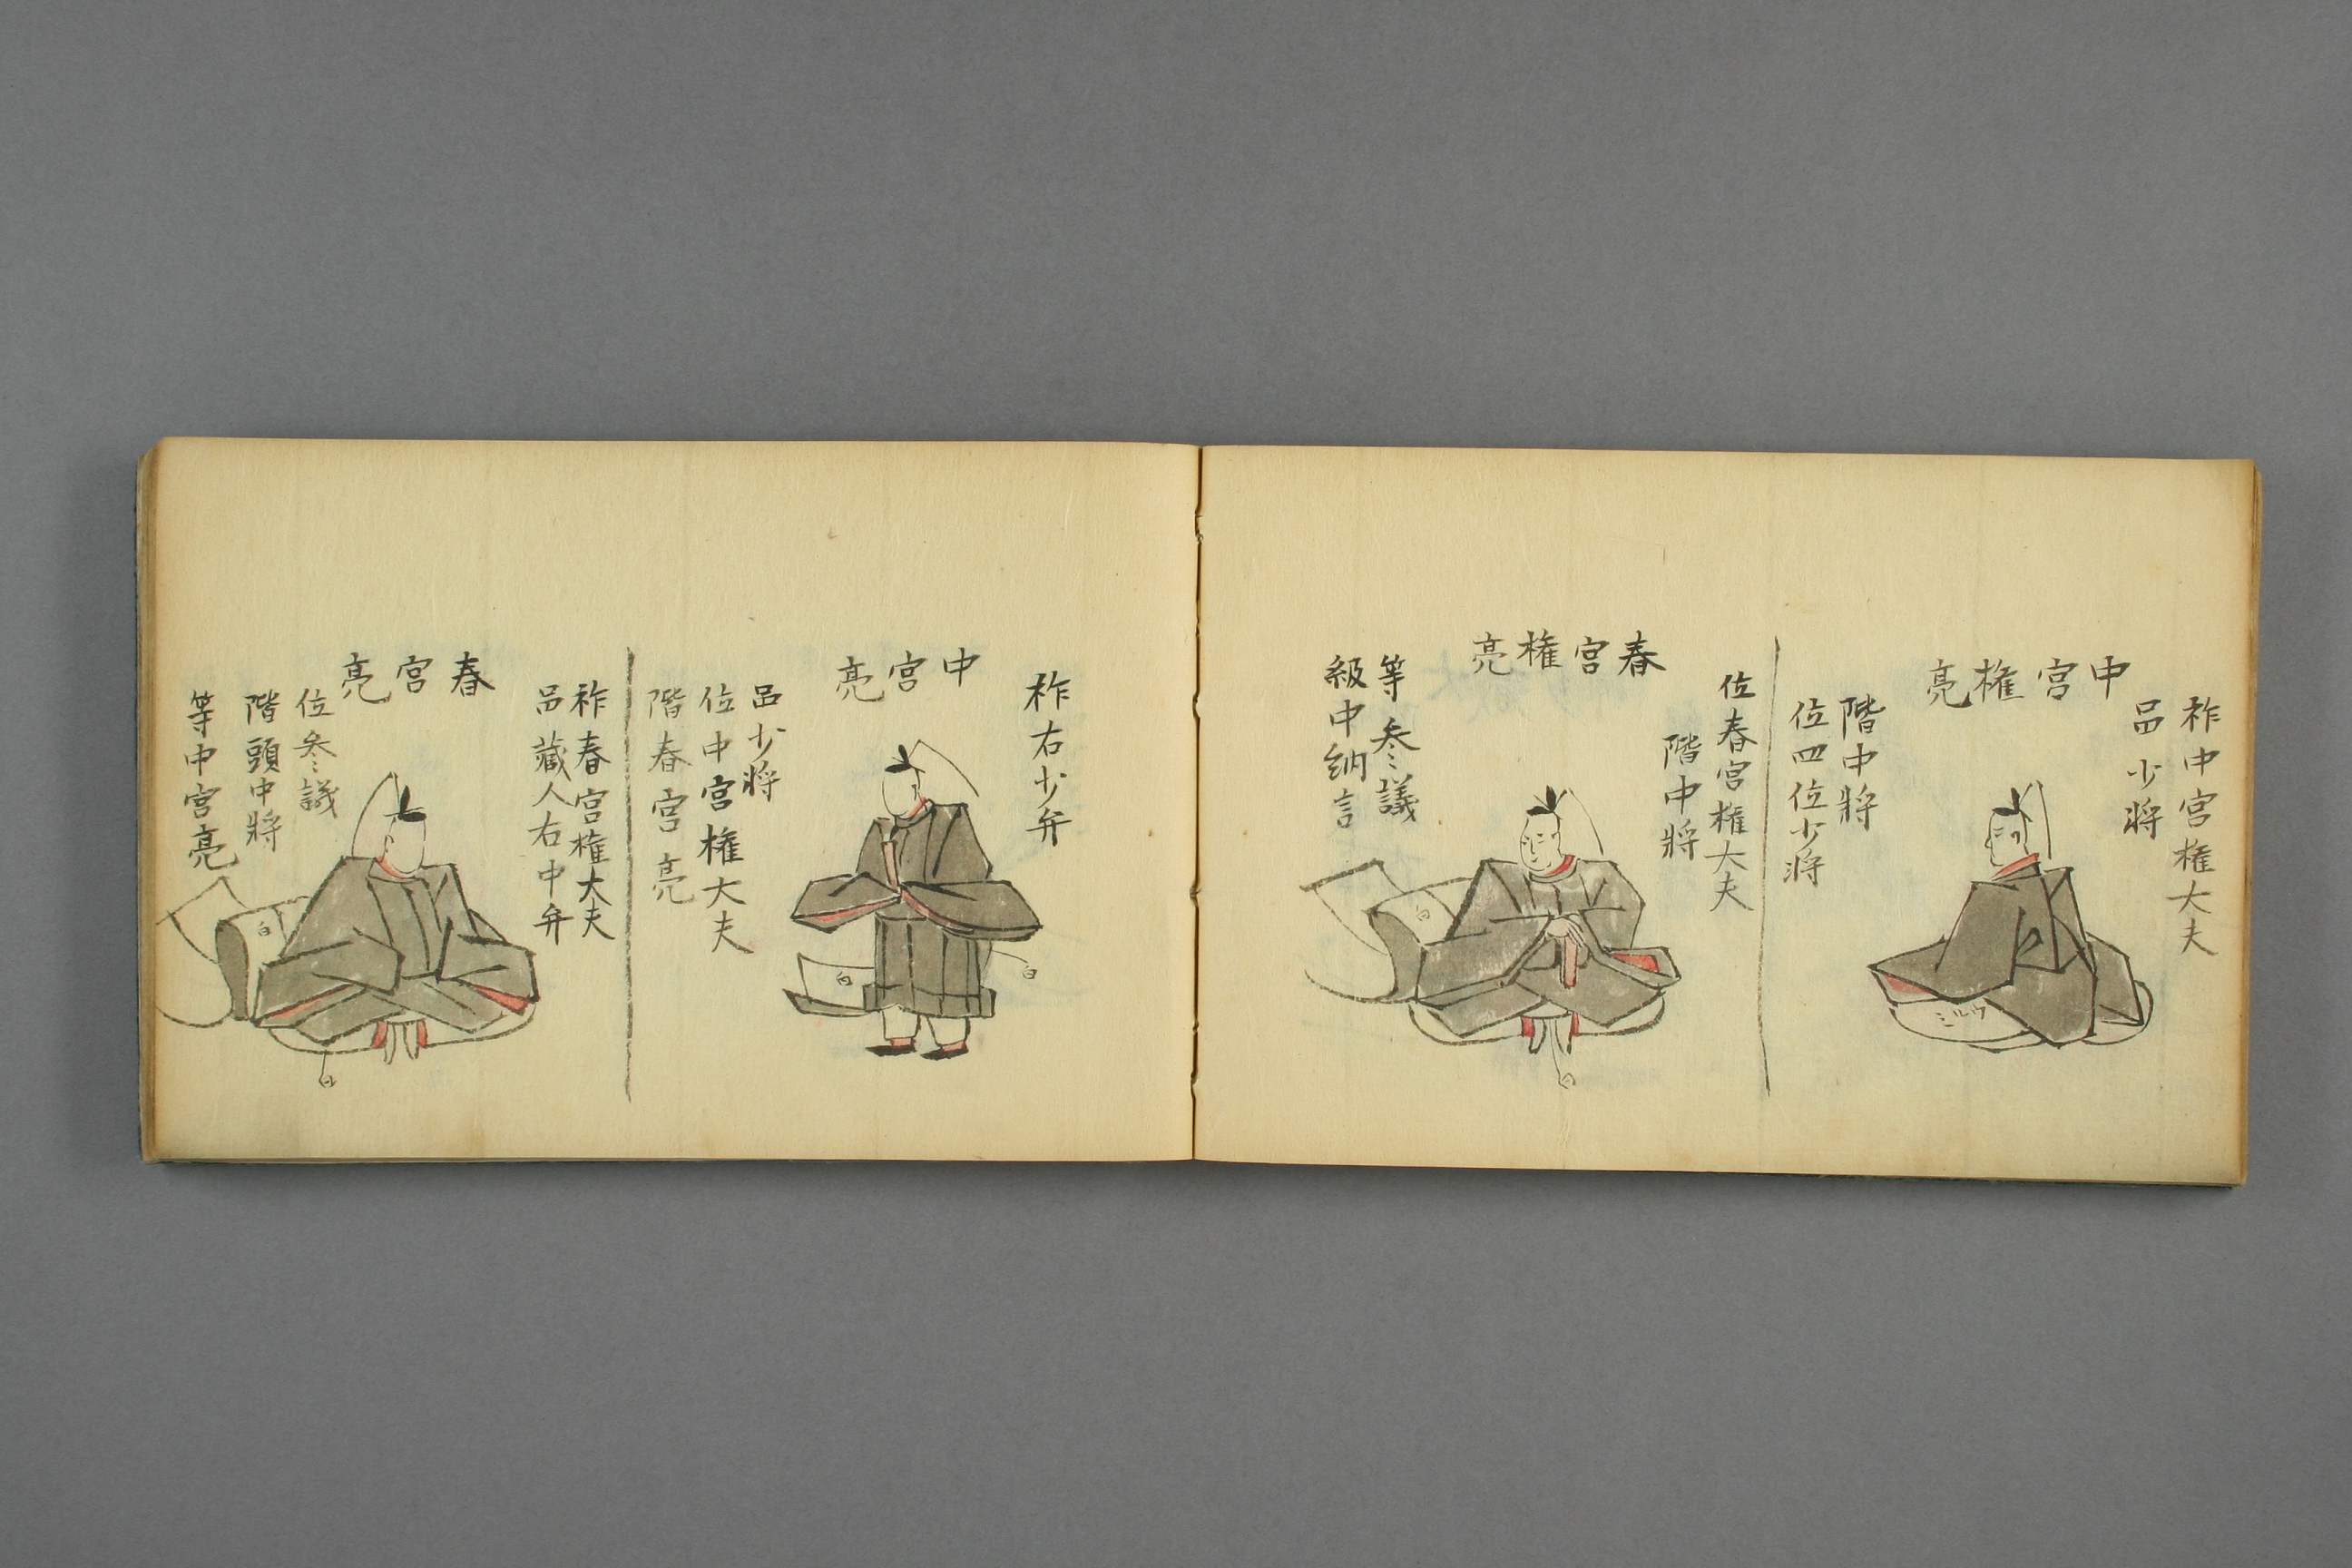 祚中宮權大夫
品少將
中宮權亮
階中將
位四位少將
ミル
位春宮權大夫
階中將
春宮權亮
等參議
級中納言
白
白
祚右少弁
中宮亮
品少將
位中宮權大夫
階春宮亮
白
白
祚春宮權大夫
品藏人右中弁
春宮亮
位參議
階頭中將
等中宮亮
白
白